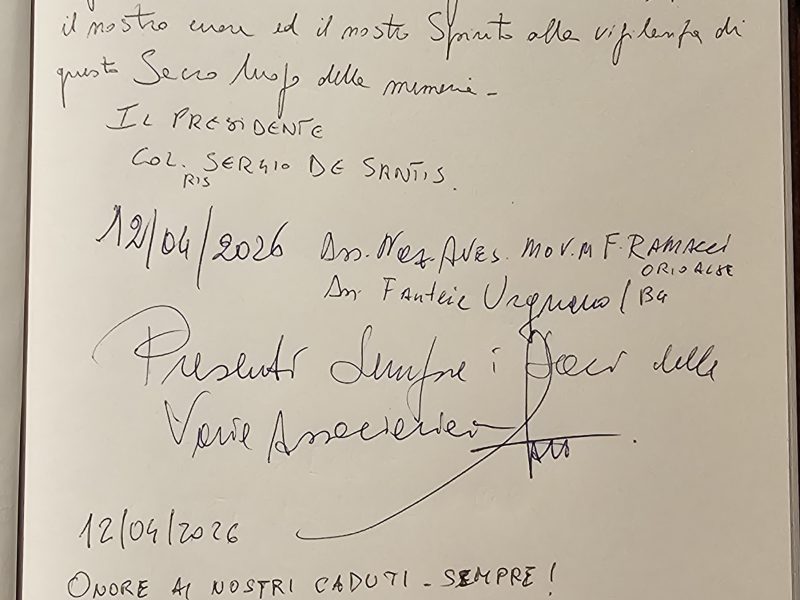 il nostro cuore ed il nostro Spirito alla vigilanza di
questo Sacro luogo della memoria -
IL PRESIDENTE
COL. SERGIO DE SANTIS.
RIS
12/04/2026 Ass. Naz. AVES. MOV.M F. RAMACCI
ORIO AL SE
Ass. Fanteria Urgnano / BG
Presenti Sempre i Soci delle
Varie Associazioni
12/04/2026
ONORE AI NOSTRI CADUTI - SEMPRE!